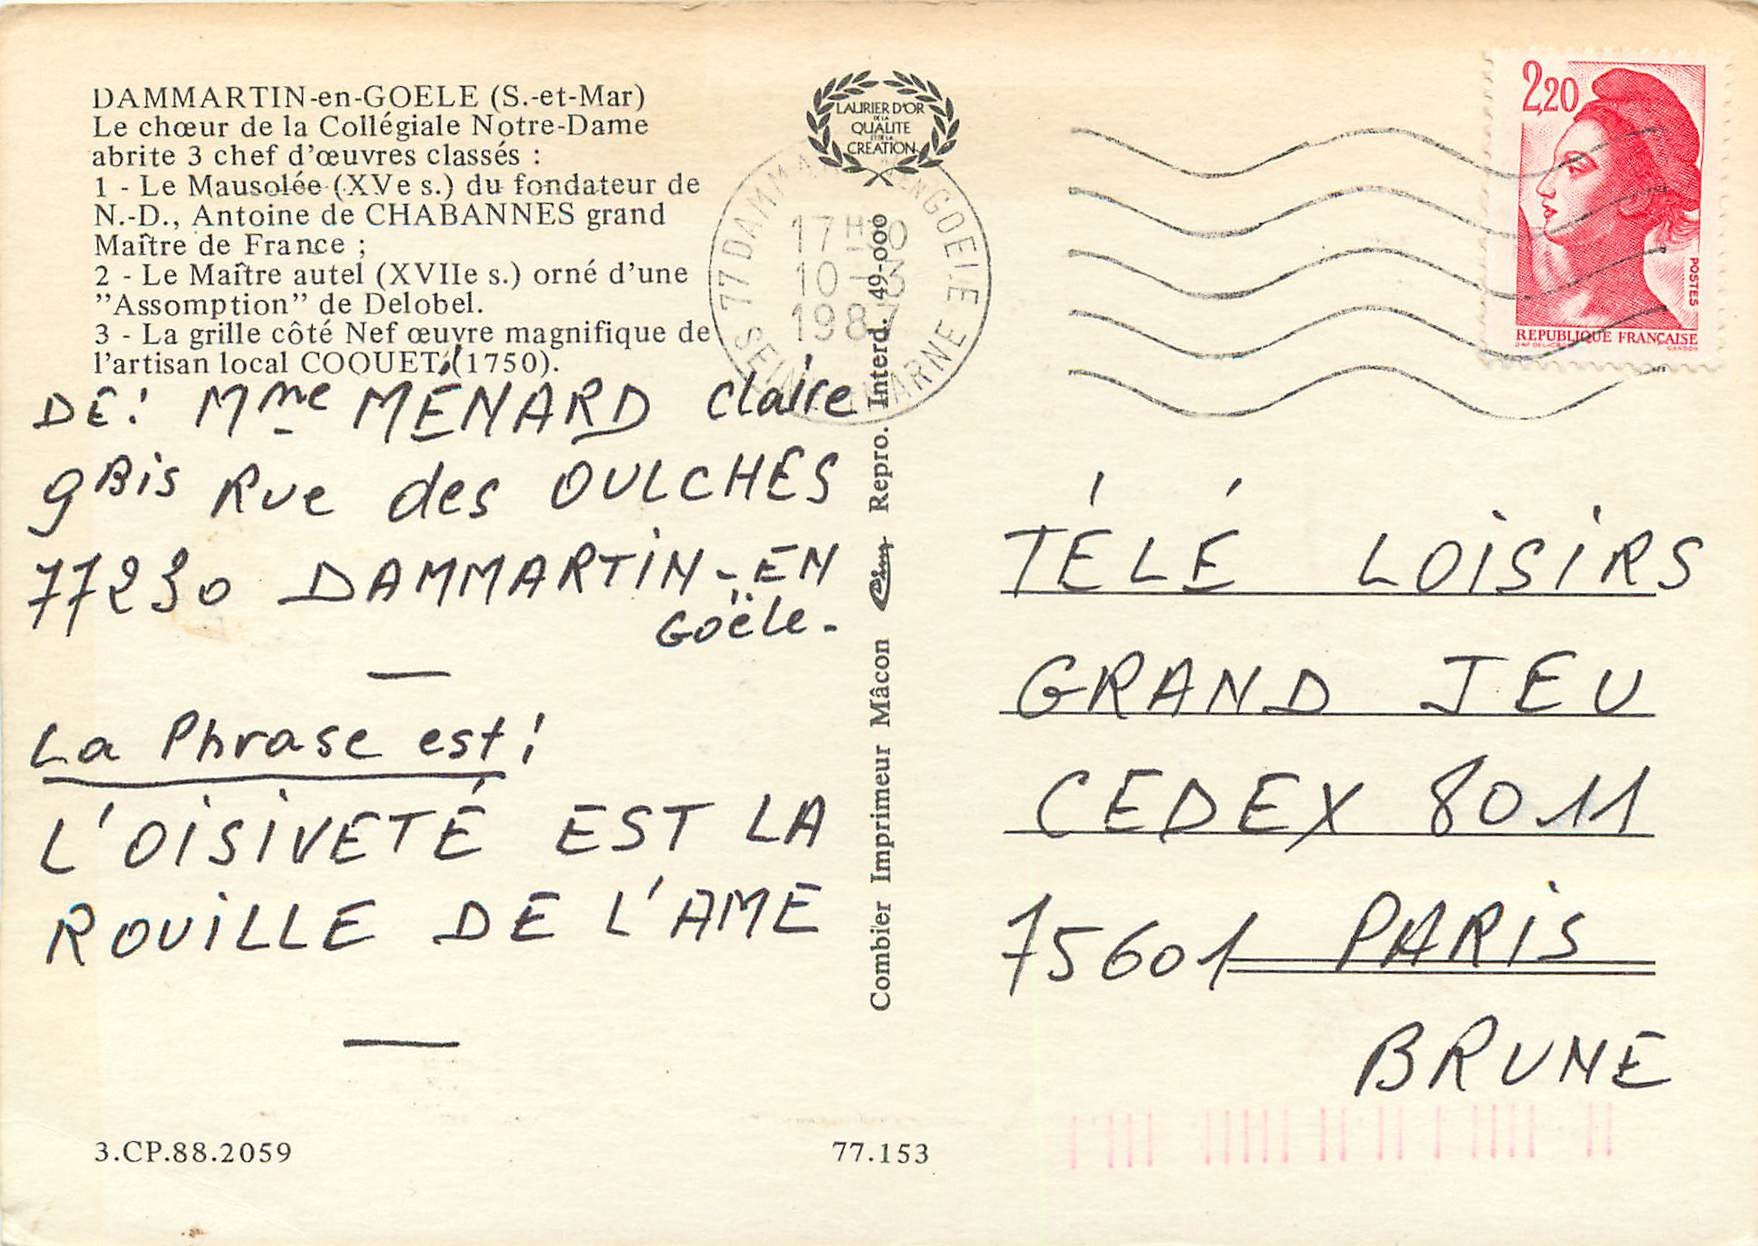 DAMMARTIN-en-GOELE (S.-et-Mar)
Le chœur de la Collégiale Notre-Dame
abrite 3 chef d'œuvres classés :
1 - Le Mausolée (XVe s.) du fondateur de
N.-D., Antoine de CHABANNES grand
Maître de France ;
2 - Le Maître autel (XVIIe s.) orné d'une
"Assomption" de Delobel.
3 - La grille côté Nef œuvre magnifique de
l'artisan local COQUET (1750).
DE: Mme MENARD Claire
9 Bis Rue des OULCHES
77230 DAMMARTIN-EN
Goële.
La Phrase est :
L'OISIVETÉ EST LA
ROUILLE DE L'AME
3.CP.88.2059
77.153
LAURIER D'OR
DE LA
QUALITE
ET DE LA
CREATION
77 DAMMA ENGOELE
17 H
10-3
198
SEINE MARNE
Combier Imprimeur Mâcon Cim Repro. Interd. 49-000
2,20
POSTES
REPUBLIQUE FRANÇAISE
TÉLÉ LOISIRS
GRAND JEU
CEDEX 8011
75601 PARIS
BRUNE